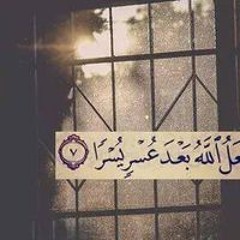 ٱللَّهُ بَعْدَ عُسْرٍ يُسْرًا ٧